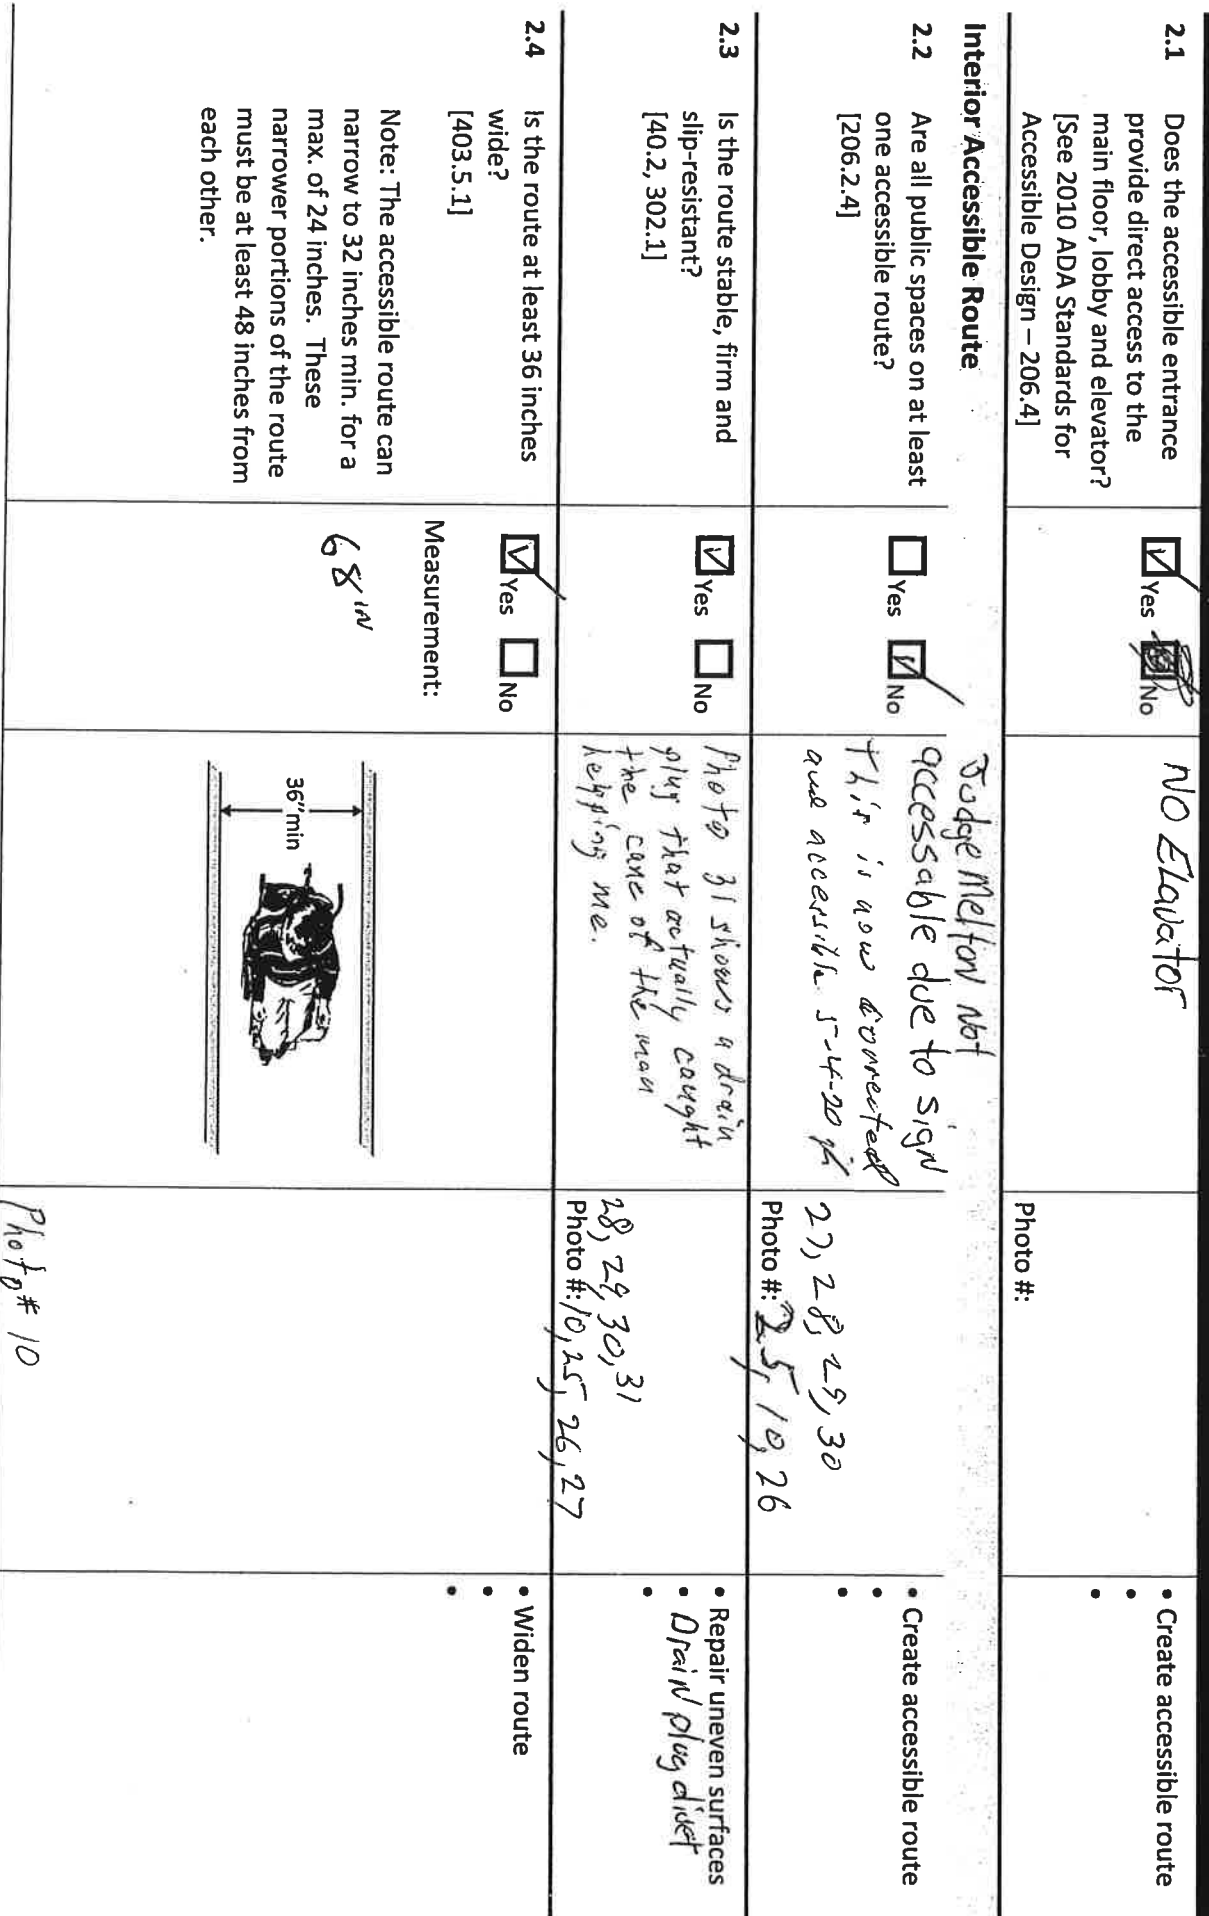 2.1 Does the accessible entrance
provide direct access to the
main floor, lobby and elevator?
[See 2010 ADA Standards for
Accessible Design – 206.4]
Yes No
NO ELavator
Photo #:
• Create accessible route
•
•
Interior Accessible Route
2.2 Are all public spaces on at least
one accessible route?
[206.2.4]
Yes No
Judge Melton Not
accessable due to sign
This is now corrected
and accessible 5-4-20
27, 28, 29, 30
Photo #: 25, 10, 26
• Create accessible route
•
•
2.3 Is the route stable, firm and
slip-resistant?
[40.2, 302.1]
Yes No
Photo 31 shows a drain
plug that actually caught
the cane of the man
helping me.
28, 29, 30, 31
Photo #: 10, 25, 26, 27
• Repair uneven surfaces
• Drain plug
•
2.4 Is the route at least 36 inches
wide?
[403.5.1]
Note: The accessible route can
narrow to 32 inches min. for a
max. of 24 inches. These
narrower portions of the route
must be at least 48 inches from
each other.
Yes No
Measurement:
68 IN
36"min
Photo # 10
• Widen route
•
•